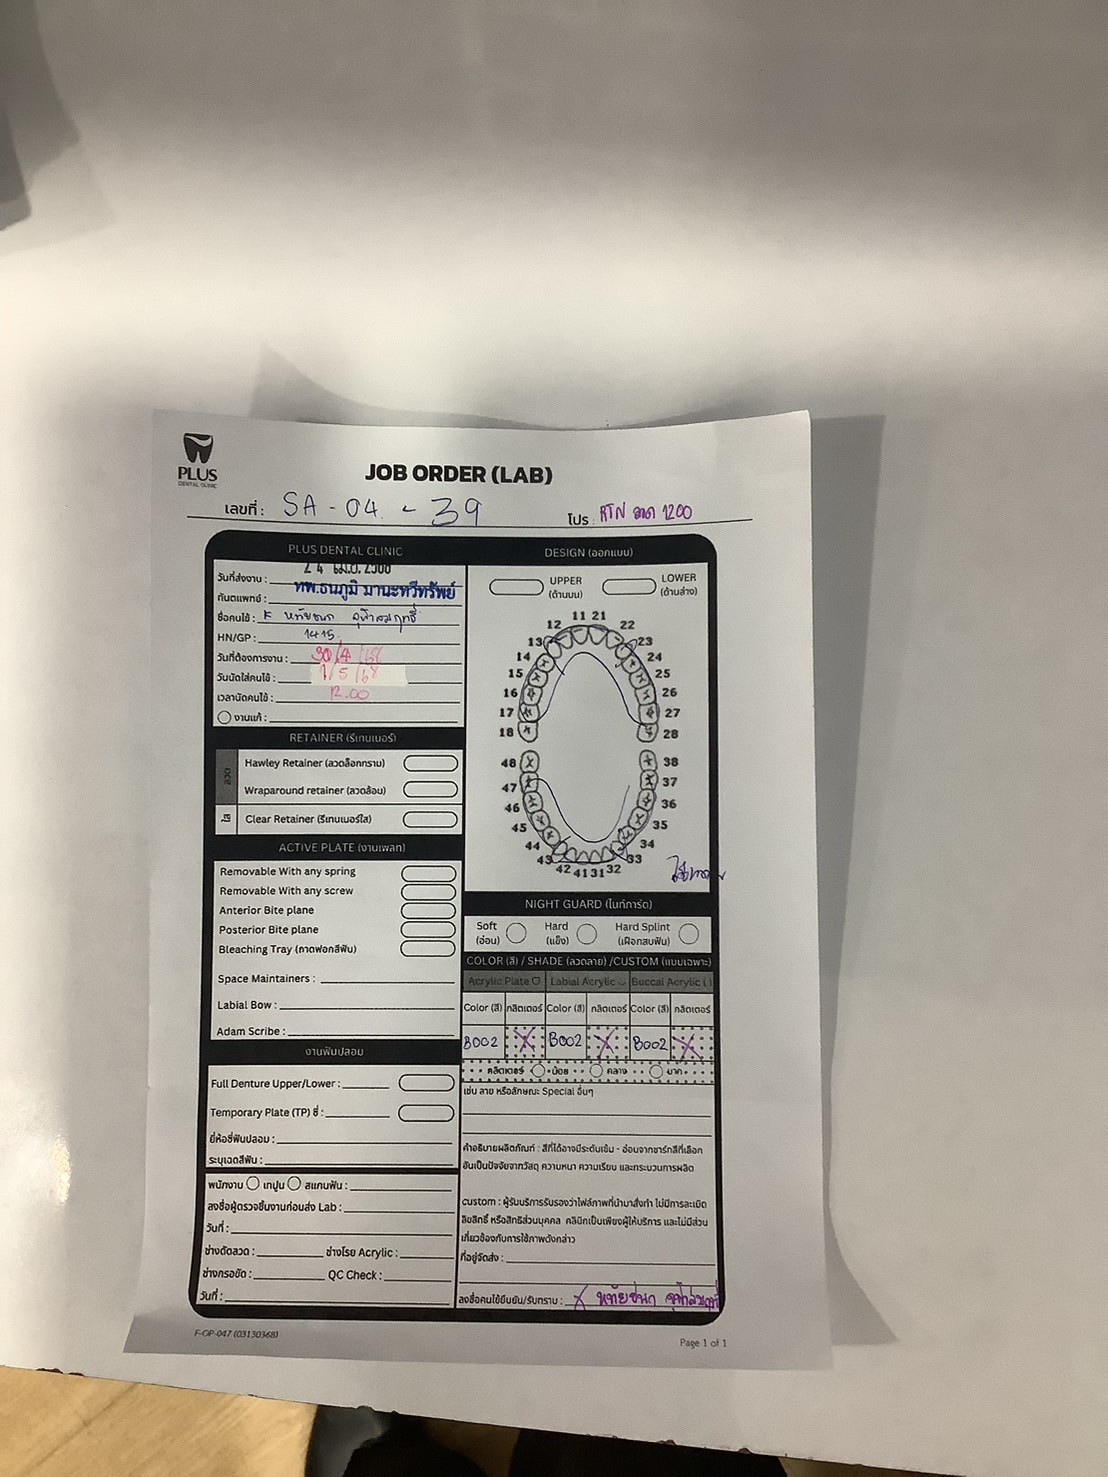 PLUS
DENTAL CLINIC
JOB ORDER (LAB)
เลขที่ : SA - 04 - 39
โปร : RTN ลวด 1200
PLUS DENTAL CLINIC
วันที่ส่งงาน :
ทันตแพทย์ : ทพ.ธนภูมิ มานะทวีทรัพย์
ชื่อคนไข้ :
HN/GP : 1415
วันที่ต้องการงาน : 30/4/68
วันนัดใส่คนไข้ : 1/5/68
เวลานัดคนไข้ : 12.00
งานแก้ :
RETAINER (รีเทนเนอร์)
ลวด
Hawley Retainer (ลวดล็อกกราม)
Wraparound retainer (ลวดล้อม)
ใส
Clear Retainer (รีเทนเนอร์ใส)
ACTIVE PLATE (งานเพลท)
Removable With any spring
Removable With any screw
Anterior Bite plane
Posterior Bite plane
Bleaching Tray (ถาดฟอกสีฟัน)
Space Maintainers :
Labial Bow :
Adam Scribe :
งานฟันปลอม
Full Denture Upper/Lower :
Temporary Plate (TP) ซี่ :
ยี่ห้อซี่ฟันปลอม :
ระบุเฉดสีฟัน :
พนักงาน เทปูน สแกนฟัน :
ลงชื่อผู้ตรวจชิ้นงานก่อนส่ง Lab :
วันที่ :
ช่างดัดลวด : ช่างโรย Acrylic :
ช่างกรอขัด : QC Check :
วันที่ :
DESIGN (ออกแบบ)
UPPER
(ด้านบน)
LOWER
(ด้านล่าง)
11 21
12 22
13 23
14 24
15 25
16 26
17 27
18 28
48 38
47 37
46 36
45 35
44 34
43 33
42 41 31 32
NIGHT GUARD (ไนท์การ์ด)
Soft
(อ่อน)
Hard
(แข็ง)
Hard Splint
(เฝือกสบฟัน)
COLOR (สี) / SHADE (ลวดลาย) /CUSTOM (แบบเฉพาะ)
Acrylic Plate Labial Acrylic Buccal Acrylic
Color (สี) กลิตเตอร์ Color (สี) กลิตเตอร์ Color (สี) กลิตเตอร์
B002 B002 B002
กลิตเตอร์ น้อย กลาง มาก
เช่น ลาย หรือลักษณะ Special อื่นๆ
คำอธิบายผลิตภัณฑ์ : สีที่ได้อาจมีระดับเข้ม - อ่อนจากชาร์ทสีที่เลือก
อันเป็นปัจจัยจากวัสดุ ความหนา ความเรียบ และกระบวนการผลิต
custom : ผู้รับบริการรับรองว่าไฟล์ภาพที่นำมาสั่งทำ ไม่มีการละเมิด
ลิขสิทธิ์ หรือสิทธิส่วนบุคคล คลินิกเป็นเพียงผู้ให้บริการ และไม่มีส่วน
เกี่ยวข้องกับการใช้ภาพดังกล่าว
ที่อยู่จัดส่ง :
ลงชื่อคนไข้ยืนยัน/รับทราบ : หทัยชนก
F-OP-047 (03130368)
Page 1 of 1